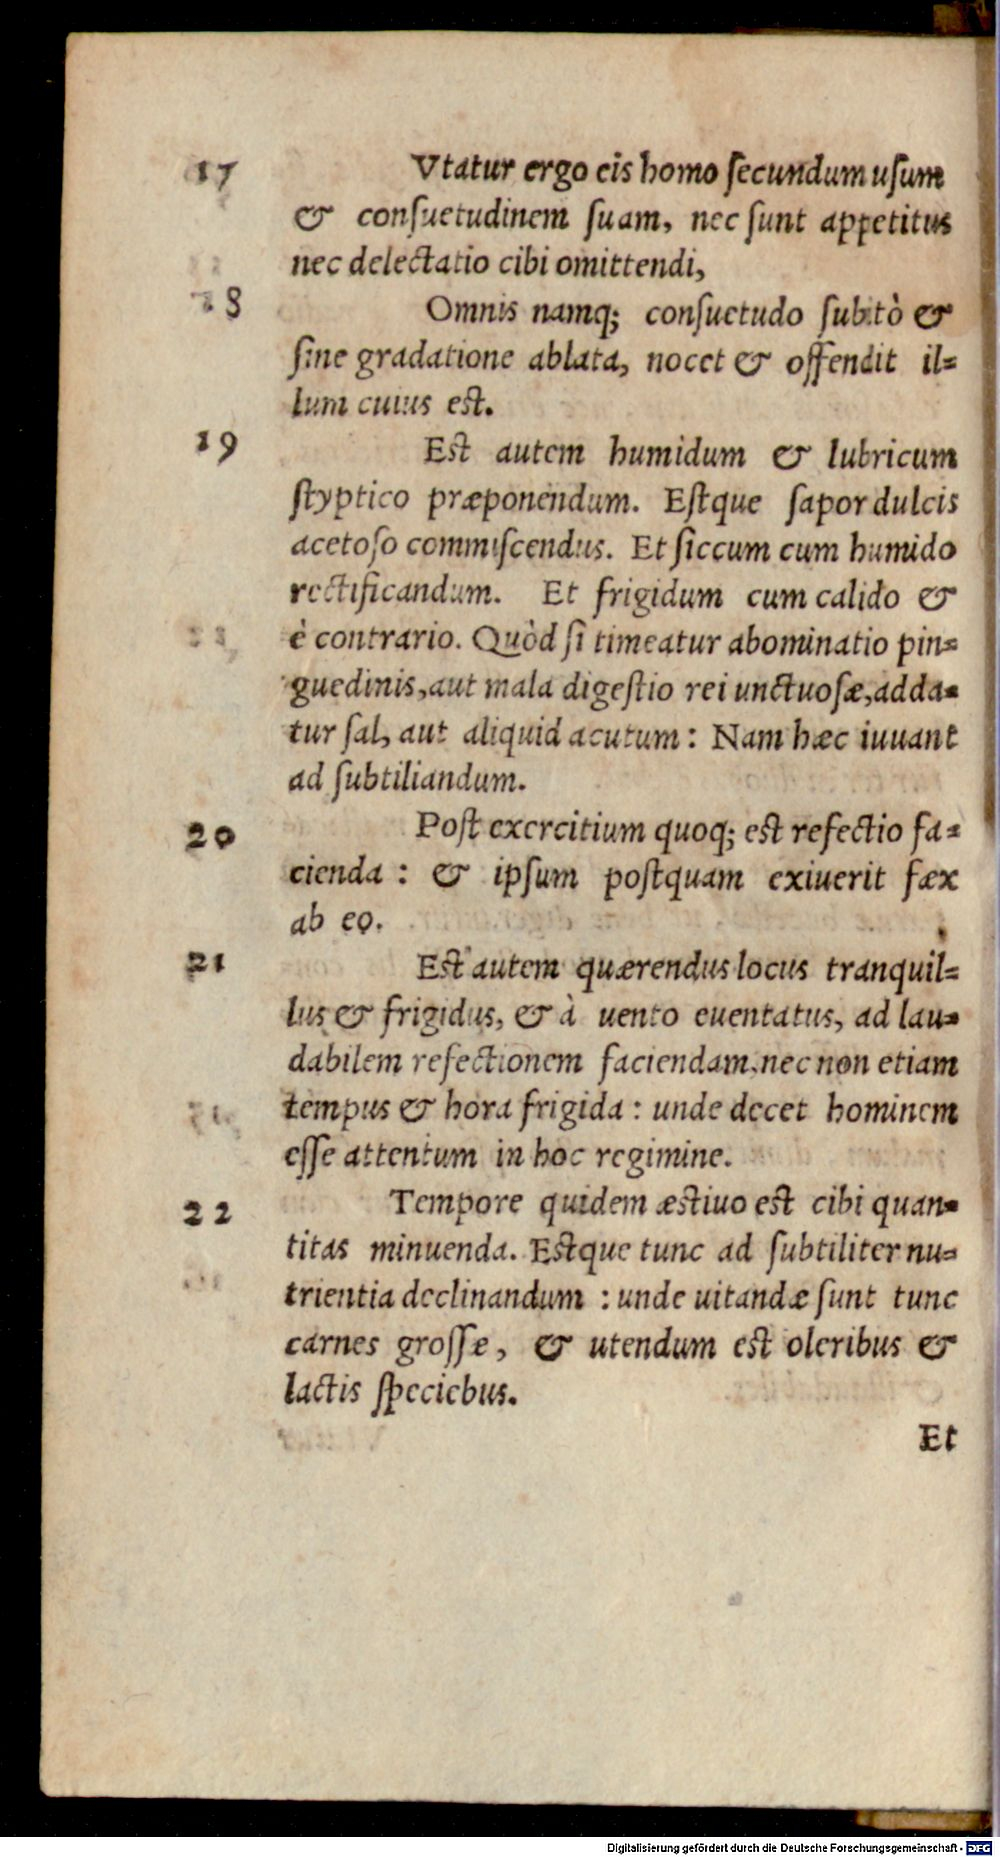 17 Vtatur ergo eis homo ſecundum uſum
& conſuetudinem ſuam, nec ſunt appetitus
nec delectatio cibi omittendi,
18 Omnis namq; conſuetudo ſubitò &
ſine gradatione ablata, nocet & offendit il=
lum cuius est.
19 Est autem humidum & lubricum
ſtyptico præponendum. Eſtque ſapor dulcis
acetoſo commiſcendus. Et ſiccum cum humido
rectificandum. Et frigidum cum calido &
è contrario. Quòd ſi timeatur abominatio pin=
guedinis, aut mala digeſtio rei unctuoſæ, adda=
tur ſal, aut aliquid acutum: Nam hæc iuuant
ad ſubtiliandum.
20 Poſt exercitium quoq; est refectio fa=
cienda: & ipſum poſtquam exiuerit fæx
ab eo.
21 Est autem quærendus locus tranquil=
lus & frigidus, & à uento euentatus, ad lau=
dabilem refectionem faciendam, nec non etiam
tempus & hora frigida: unde decet hominem
eſſe attentum in hoc regimine.
22 Tempore quidem æstiuo est cibi quan=
titas minuenda. Estque tunc ad ſubtiliter nu=
trientia declinandum: unde uitandæ ſunt tunc
carnes groſſæ, & utendum est oleribus &
lactis ſpeciebus.
Et
Digitalisierung gefördert durch die Deutsche Forschungsgemeinschaft - DFG